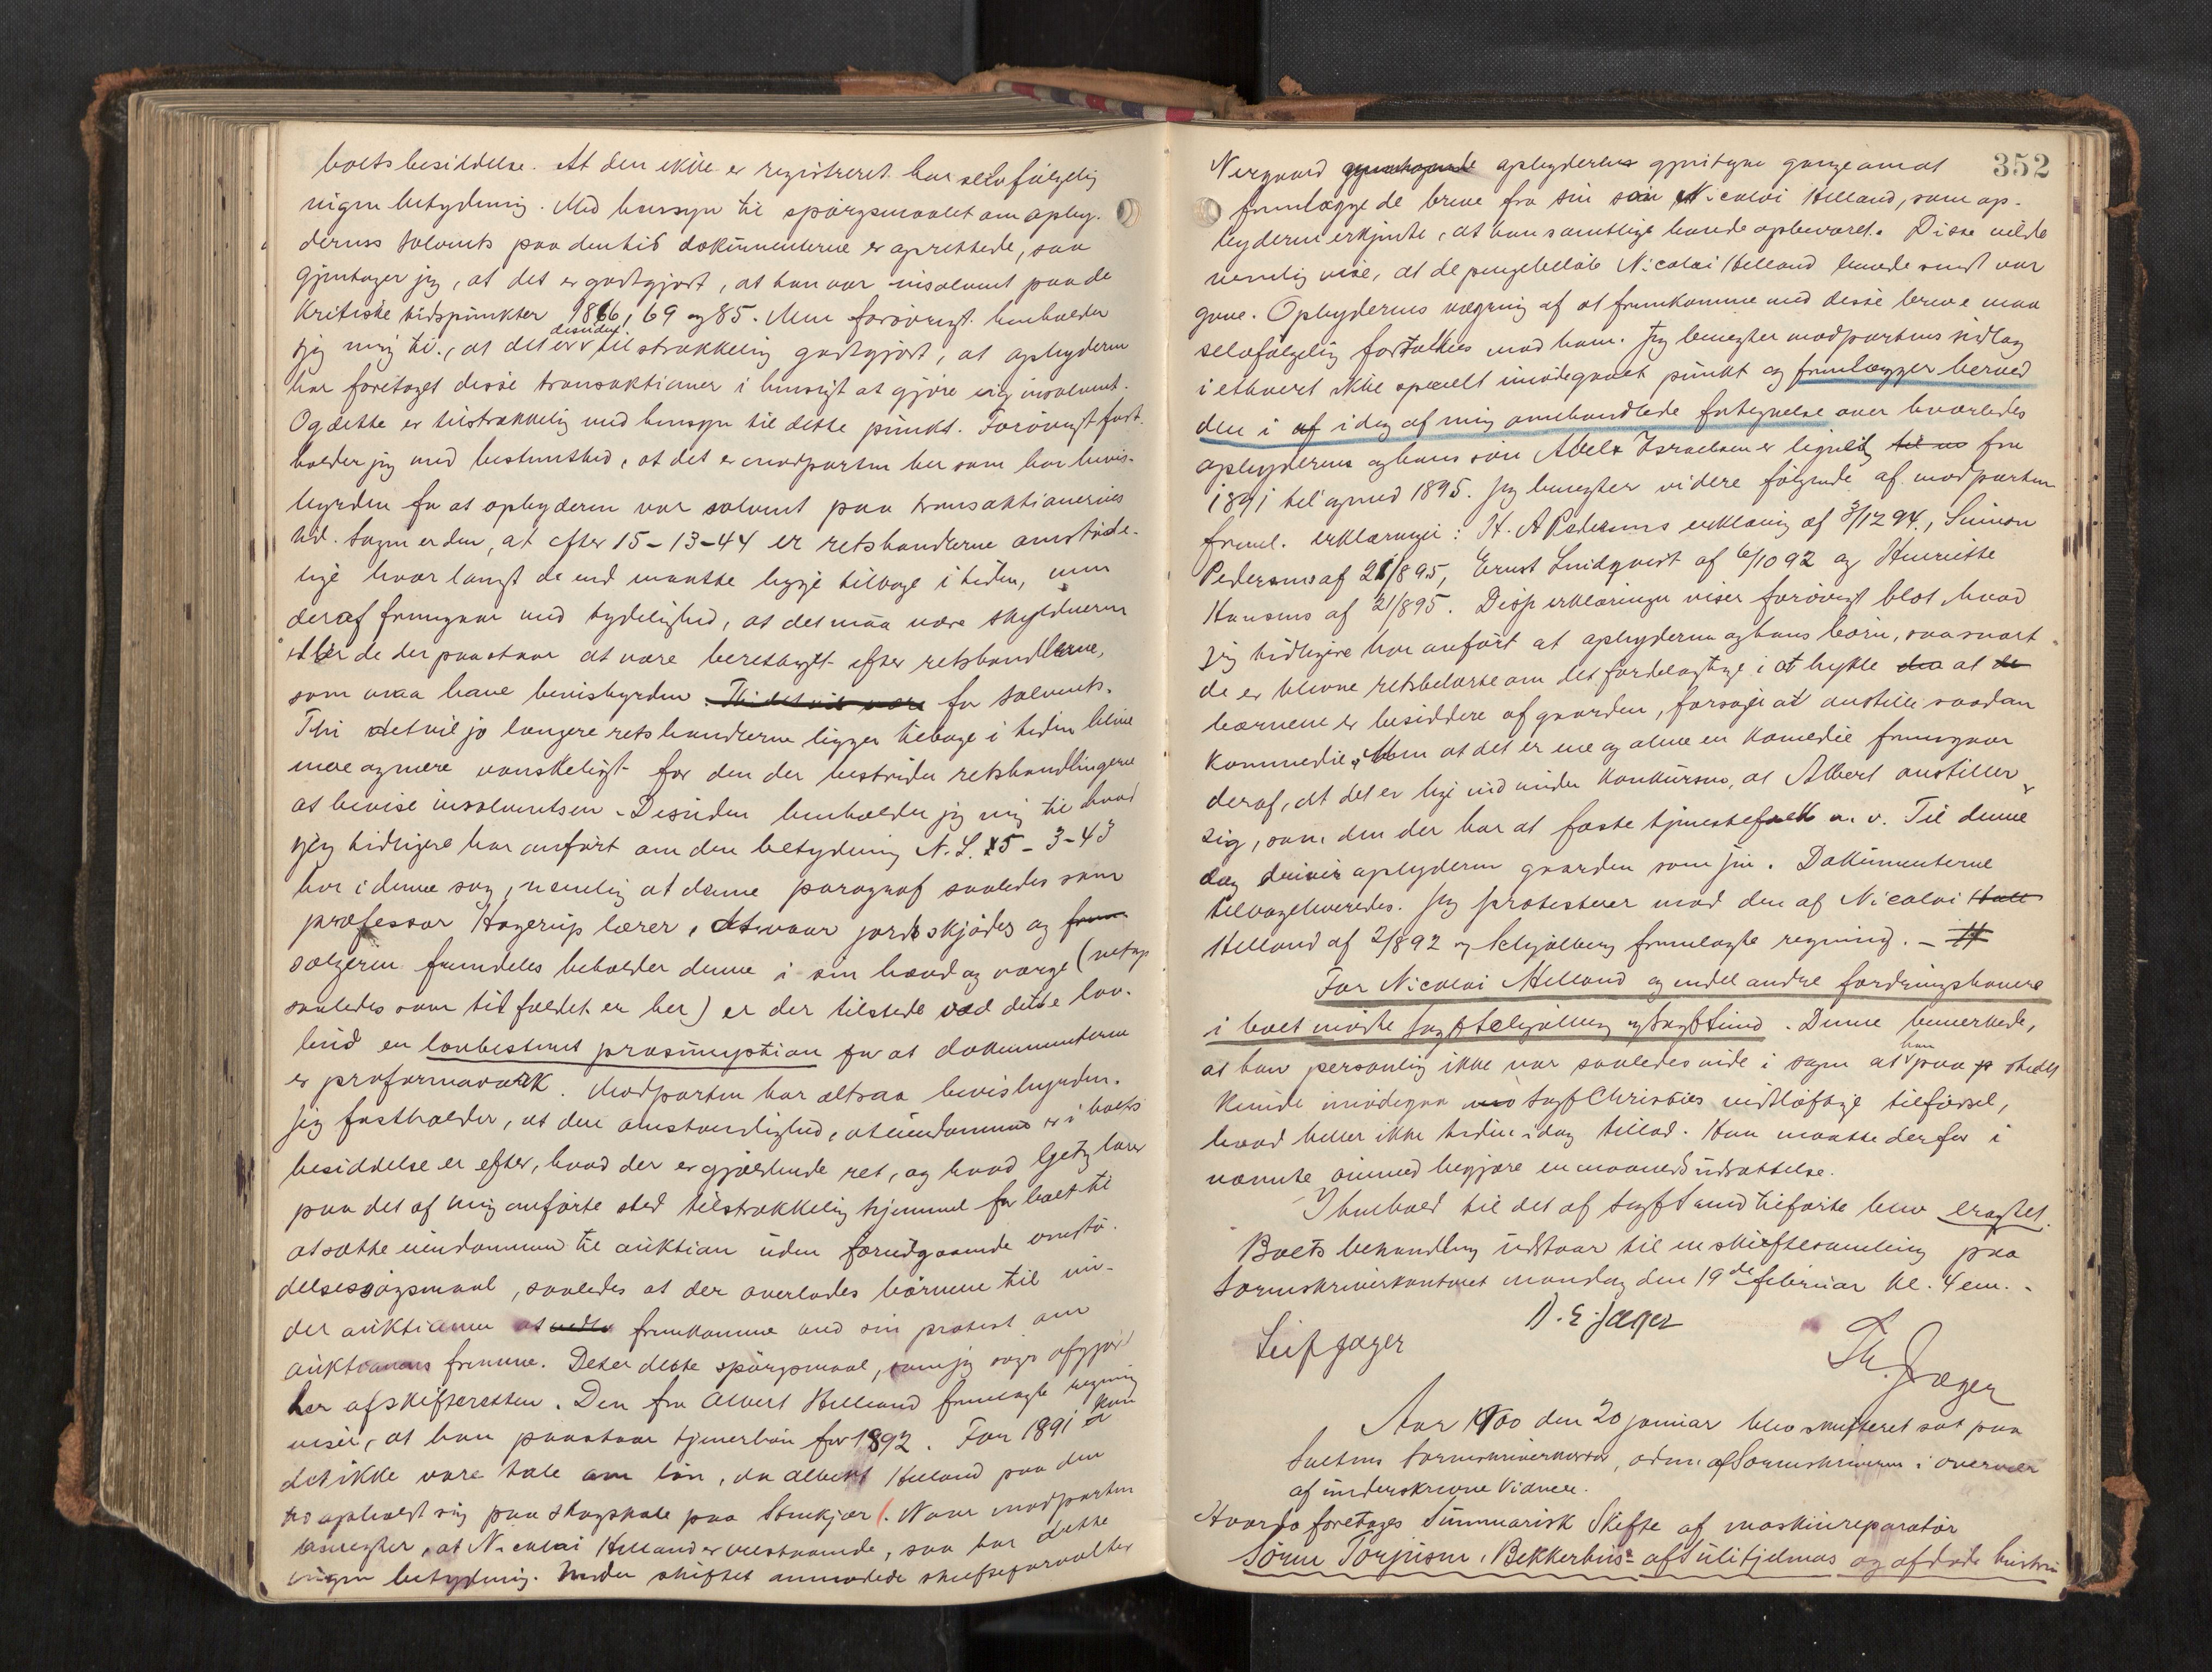 boets besiddelse. At den ikke er registreret har selvfølgelig
ingen betydning. Med hensyn til spörgsmaalet om ophy-
derens solvents paa den tid dokumenterne er oprettede, saa
gjentager jeg, at det er godtgjort, at han var insolvent paa de
kritiske tidspunkter 1866, 69 og 85. Men forøvrigt henholder
jeg mig til, at det er desuden tilstrækkelig godtgjort, at ophyderen
har foretaget disse transaktioner i hensigt at gjøre sig insolvent.
Og dette er tilstrækkelig med hensyn til dette punkt. Forøvrigt fast-
holder jeg med bestemthed, at det er modparten her som har bevis-
byrden for at ophyderen var solvent paa transaktionernes
tid. Sagen er den, at efter 15-13-44 er retshandlerne omstöde-
lige hvor langt de end maatte ligge tilbage i tiden, men
deraf fremgaar med tydelighed, at det maa være skyldneren
eller de der paastaar at være berettiget efter retshandlerne,
som maa have bevisbyrden Thi det vil være for solvents.
Thi det vil jo længere retshandlerne ligger tilbage i tiden blive
mere og mere vanskeligt for den der bestrider retshandlingerne
at bevise insolventsen. Desuden henholder jeg mig til hvad
jeg tidligere har anfört om den betydning N. L. 5-3-43
har i denne sag, nemlig at denne paragraf saaledes som
professor Hagerup lærer, at naar jord skjødes og frem
sælgeren fremdeles beholder denne i sin hævd og værge (netop
saaledes som tilfældet er her) er der tilstede ved dette lov-
bud en lovbestemt præsumption for at dokumenterne
er proformaværk. Modparten har altsaa bevisbyrden.
Jeg fastholder, at den omstændighed, at eiendommen er i boets
besiddelse er efter, hvad der er gjældende ret, og hvad Getz lærer
paa det af mig anförte sted tilstrækkelig hjemmel for boet til
at sætte eiendommen til auktion uden forudgaaende omstö-
delsessögsmaal, saaledes at der overlades börnene til un-
der auktionen at nedla fremkomme med sin protest om
auktionens fremme. Det er dette spörgsmaal, som jeg söger afgjort
her af skifteretten. Den fra Albert Helland fremlagte regning
viser, at han paastaar tjenerlön for 1892. For 1891 kan
det ikke være tale om lön, da Albert Helland paa den
tid opholdt sig paa skogskole paa Stenkjær. Naar modparten
benegter, at Nicolai Helland er velstaaende, saa har dette
ingen betydning. Under skiftet anmodede skifteforvalter
352
Nergaard gjentagende ophyderen gjentagne gange om at
fremlægge de breve fra sin sön Nicolai Helland, som op-
hyderen erkjente, at han samtlige havde opbevaret. Disse vilde
nemlig vise, at de pengebelöb Nicolai Helland havde sendt var
gave. Ophyderens vægring af at fremkomme med disse breve maa
selvfølgelig fortolkes mod ham. Jeg benegter modpartens indlæg
i ethvert ikke specielt imödegaaet punkt og fremlægger herved
den i af idag af mig omhandlede fortegnelse over hvorledes
ophyderen og hans sön Abel Israelsen er lignet til us fra
1891 til og med 1895. Jeg benegter videre fölgende af modparten
freml. erklæringer: H. A Pedersens erklæring af 3/12 94, Simon
Pedersens af 21/8 95, Ernst Lindqvist af 6/10 92 og Henriette
Hansens af 21/8 95. Disse erklæringer viser forövrigt blot, hvad
jeg tidligere har anfört at ophyderen og hans börn, saa snart
de er blevne retsbelærte om det fordelagtige i at hykle dea at de
børnene er besiddere af gaarden, forsöger at anstille saadan
kommedie. Men at det er ene og alene en komedie fremgaar
deraf, at det er lige ind under konkursen, at Albert anstiller
sig, som den der har at fæste tjenestefolk o. s. v. Til denne
dag driver ophyderen gaarden som sin. Dokumenterne
tilbageleveredes. Jeg protesterer mod den af Nicolai Hell
Helland af 2/8 92 og Schjølberg fremlagte regning. - H
For Nicolai Helland og endel andre fordringshavere
i boet mödte sagf Schjølberg ved sagf Lund. Denne bemerkede,
at han personlig ikke var saaledes inde i sagen at han paa p stedet
kunde imödegaa sagf Christies vidtløftige tilførsel,
hvad heller ikke tiden idag tillod. Han maatte derfor i
nævnte öiemed begjære en maaneds udsættelse.
I henhold til det af sagf Lund tilførte blev eragtet.
Boets behandling udstaar til en skiftesamling paa
Sorenskriverkontoret mandag den 19de februar kl. 4 em. -
D. E. Jæger
Leif Jæger
Th. Jæger
Aar 1900 den 20 januar blev skifteret sat paa
Saltens Sorenskriverkontor, adm. af Sorenskriveren i overvær
af underskrevne Vidner.
Hvorda foretages Summarisk Skifte af maskinreparatör
Sören Torjusen, Bekkerhus- af Sulitjelmas og afdøde hustru